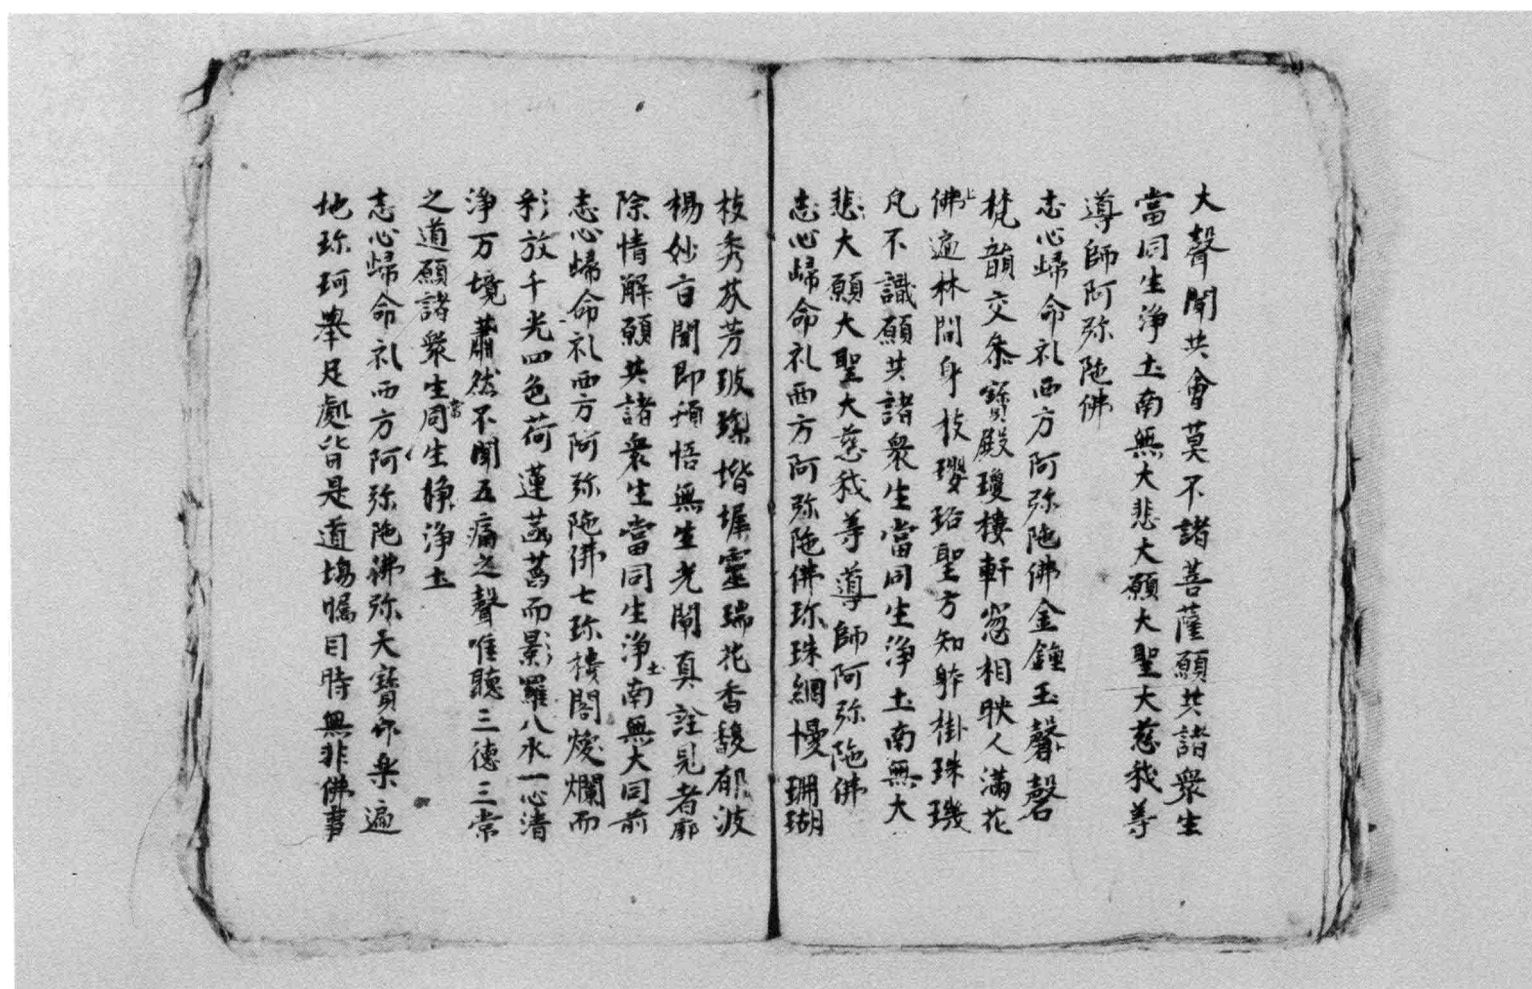 大聲聞共會莫不諸菩薩願共諸衆生
當同生淨土南無大悲大願大聖大慈我等
導師阿弥陁佛
志心歸命礼西方阿弥陁佛金鍾玉聲磬
梵韻交条寶殿瓊樓軒窓相映人滿花
佛上遍林間身枝瓔珞聖方知躰掛珠璣
凡不識願共諸衆生當同生淨土南無大
悲大願大聖大慈我等導師阿弥陁佛
志心歸命礼西方阿弥陁佛珎珠網幔珊瑚
枝秀芬芳玻瓈堦墀靈瑞花香馥郁波
楊妙言聞即預悟無生光闡真詮見者廓
除情解願共諸衆生當同生淨土南無大同前
志心歸命礼西方阿弥陁佛七珎樓閣煥爛而
彩放千光四色荷蓮菡萏而影羅八水一心清
淨万境蕭然不聞五痛之聲唯聽三德三常
之道願諸衆生當同生淨土
志心歸命礼西方阿弥陁佛弥天寶印樂遍
地珎珂舉足處皆是道場矚目時無非佛事